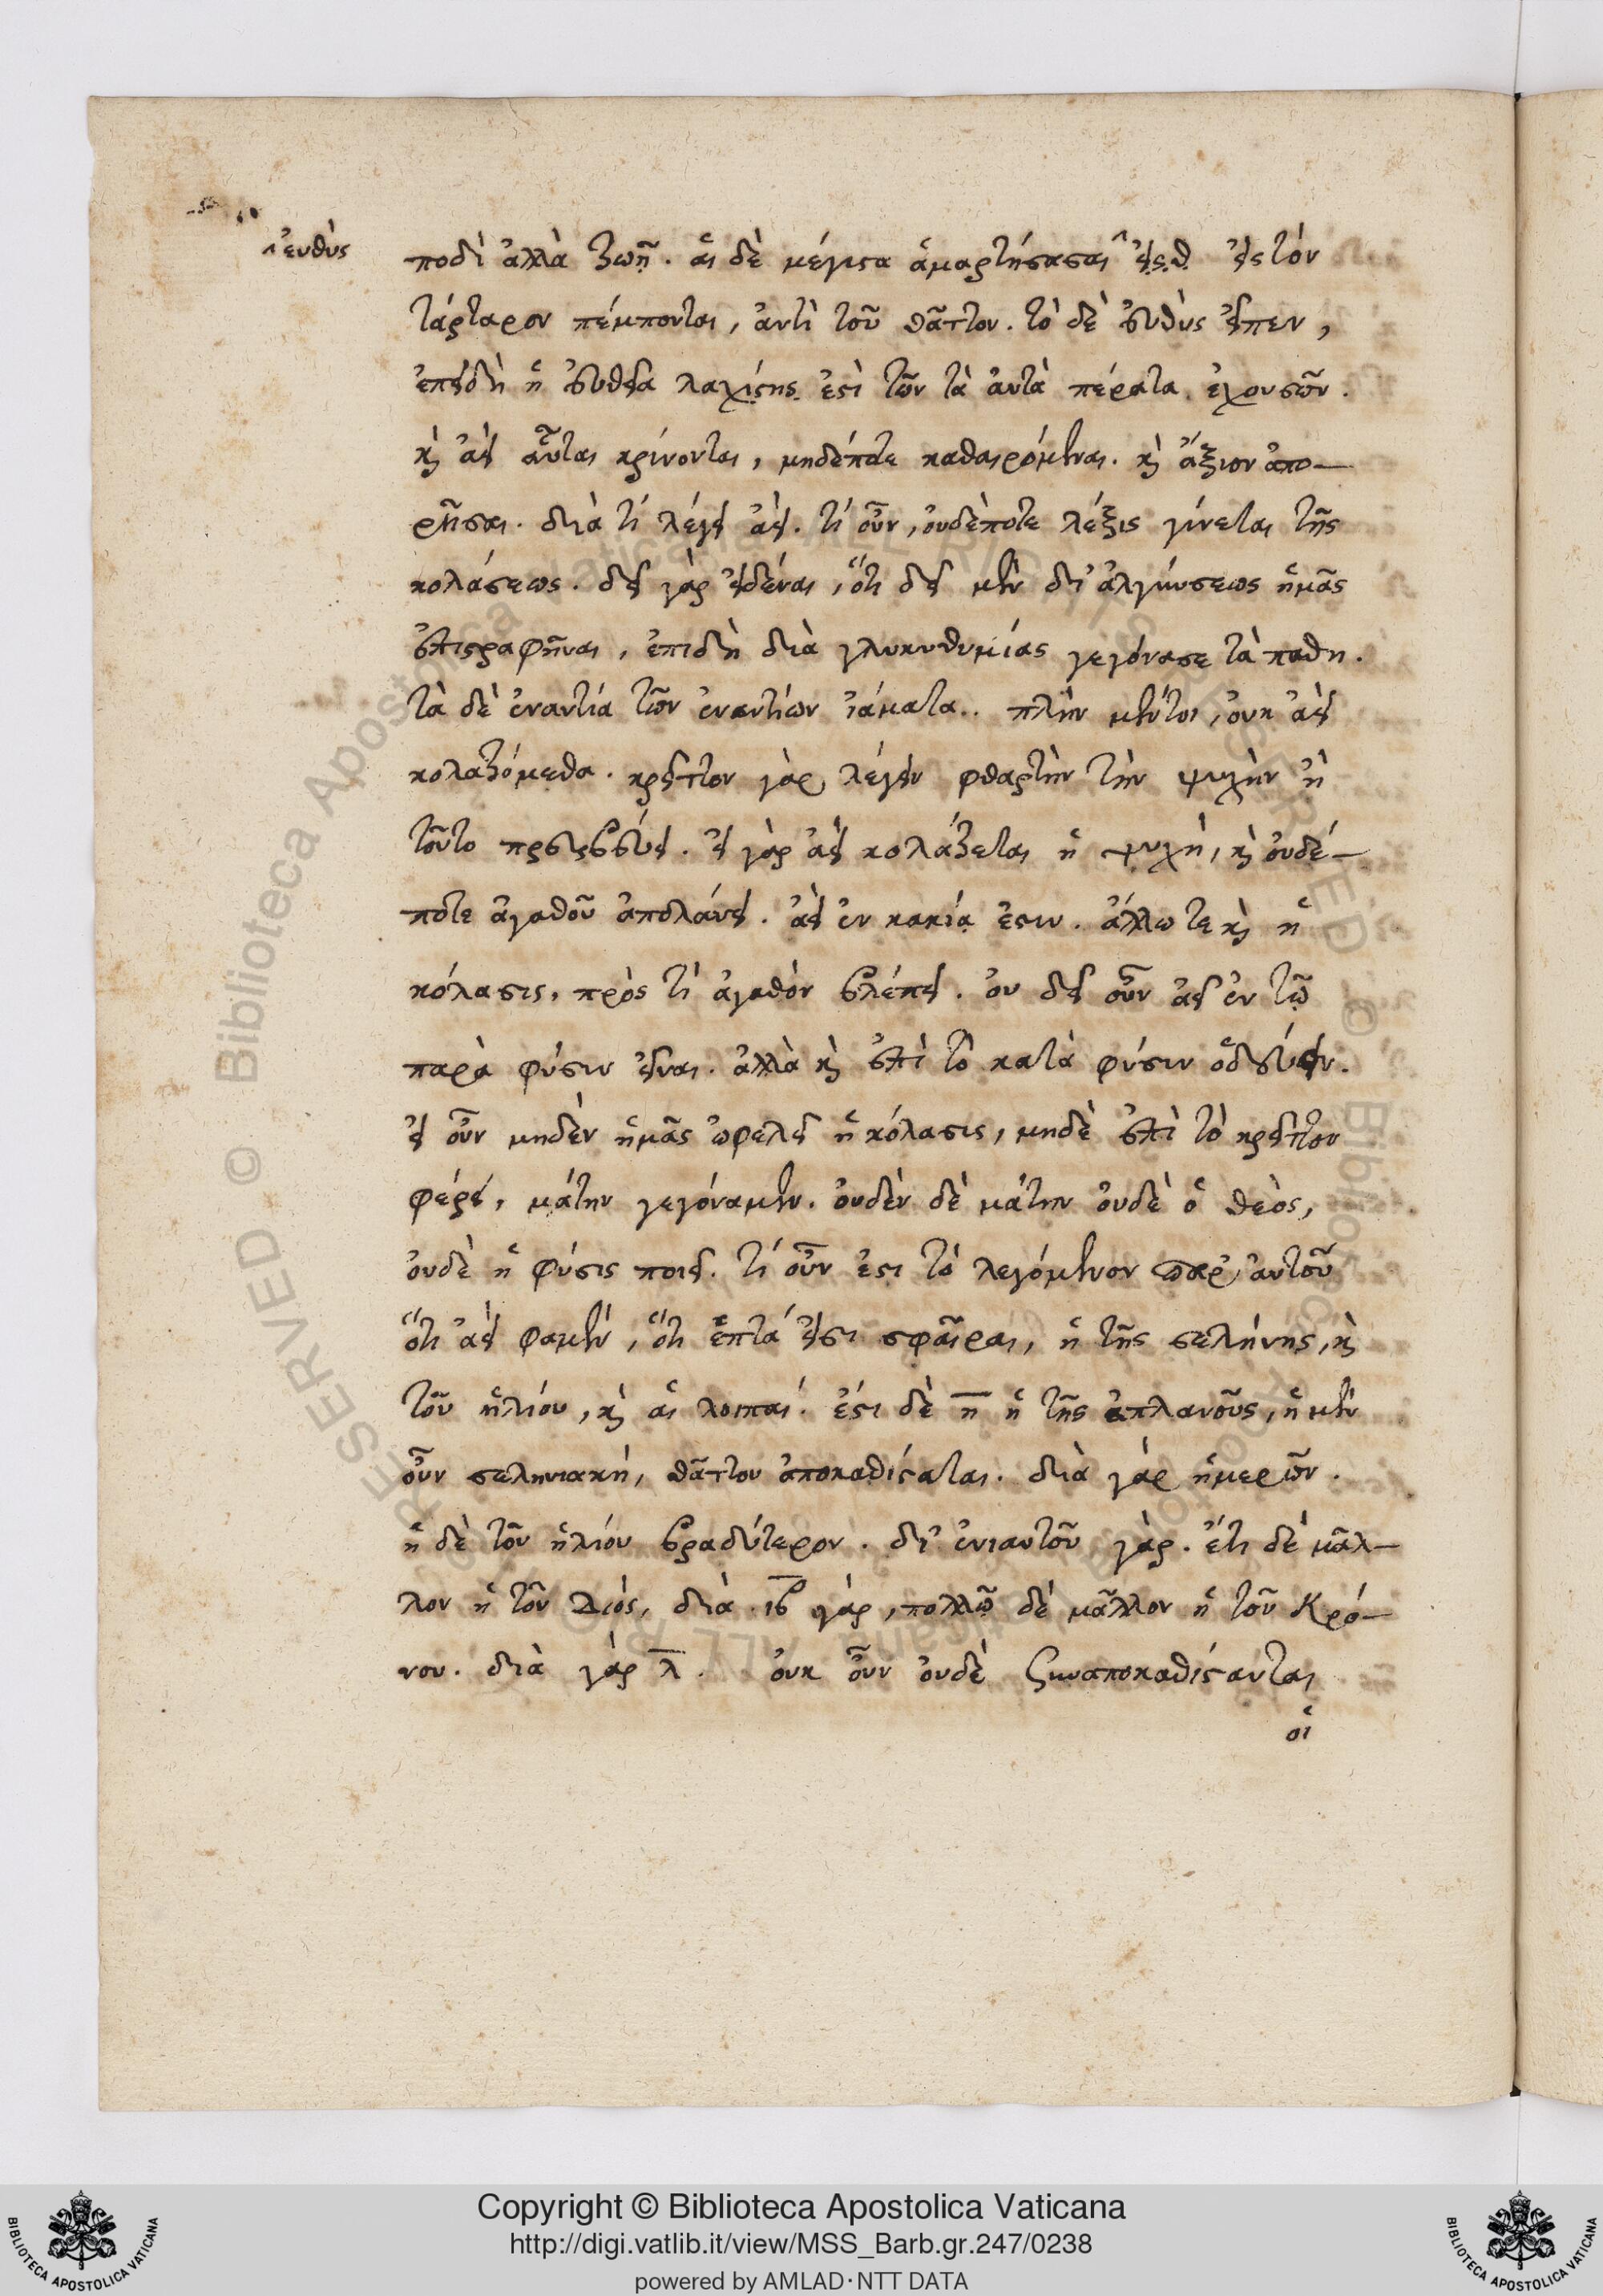 εὐθὺς
ποδὶ ἀλλὰ ζωῇ. αἱ δὲ μέγιστα ἁμαρτήσασαι εἰς θ εἰς τὸν
τάρταρον πέμπονται, ἀντὶ τοῦ θᾶττον. τὸ δὲ εὐθὺς εἶπεν,
ἐπειδὴ ἡ εὐθεῖα λαχίστης ἐστὶ τῶν τὰ αὐτὰ πέρατα ἐχουσῶν.
καὶ ἀεὶ αὗται κρίνονται, μηδέποτε καθαιρόμεναι. καὶ ἄξιον ἀπο-
ρῆσαι. διὰ τί λέγει ἀεί. τί οὖν, οὐδέποτε λέξις γίνεται τῆς
κολάσεως. δεῖ γὰρ εἰδέναι, ὅτι δεῖ μὲν δι' ἀλγύνσεως ἡμᾶς
ἐπιστραφῆναι, ἐπιδὴ διὰ γλυκυθυμίας γεγόνασε τὰ παθη.
τὰ δὲ ἐναντία τῶν ἐναντίων ἰάματα.. πλὴν μέντοι, οὐκ ἀεὶ
κολαζόμεθα. κρεῖττον γὰρ λέγειν φθαρτὴν τὴν ψυχὴν ἢ
τοῦτο πρεσβεύει. εἰ γὰρ ἀεὶ κολάζεται ἡ ψυχὴ, καὶ οὐδέ-
ποτε ἀγαθοῦ ἀπολάυει. ἀεὶ ἐν κακίᾳ ἐστιν. ἄλλωτε καὶ ἡ
κόλασις, πρὸς τὶ ἀγαθὸν βλέπει. οὐ δεῖ οὖν ἀεὶ ἐν τῷ
παρὰ φύσιν εἶναι. ἀλλὰ καὶ ἐπὶ τὸ κατὰ φύσιν ὁδεύειν.
εἰ οὖν μηδὲν ἡμᾶς ὠφελεῖ ἡ κόλασις, μηδὲ ἐπὶ τὸ κρεῖττον
φέρει, μάτην γεγόναμεν. οὐδὲν δὲ μάτην οὐδὲ ὁ θεὸς,
οὐδὲ ἡ φύσις ποιεῖ. τί οὖν ἐστι τὸ λεγόμενον παρ' αὐτοῦ
ὅτι ἀεὶ φαμὲν, ὅτι ἑπτά εἰσι σφαῖραι, ἡ τῆς σελήνης, καὶ
τοῦ ἡλίου, καὶ αἱ λοιπαί. ἔστι δὲ η̅ ἡ τῆς ἀπλανοῦς, ἡ μὲν
οὖν σεληνιακή, θᾶττον ἀποκαθίσταται. διὰ γὰρ ἡμερῶν.
ἡ δὲ τοῦ ἡλίου βραδύτερον. δι' ἐνιαυτοῦ γὰρ. ἔτι δὲ μᾶλ-
λον ἡ τοῦ Διός, διὰ ι̅β̅ γὰρ, πολλῷ δὲ μᾶλλον ἡ τοῦ Κρό-
νου. διὰ γὰρ λ̅. οὐκ οὖν οὐδὲ συναποκαθίστανται
οἱ
Copyright © Biblioteca Apostolica Vaticana
http://digi.vatlib.it/view/MSS_Barb.gr.247/0238
powered by AMLAD·NTT DATA